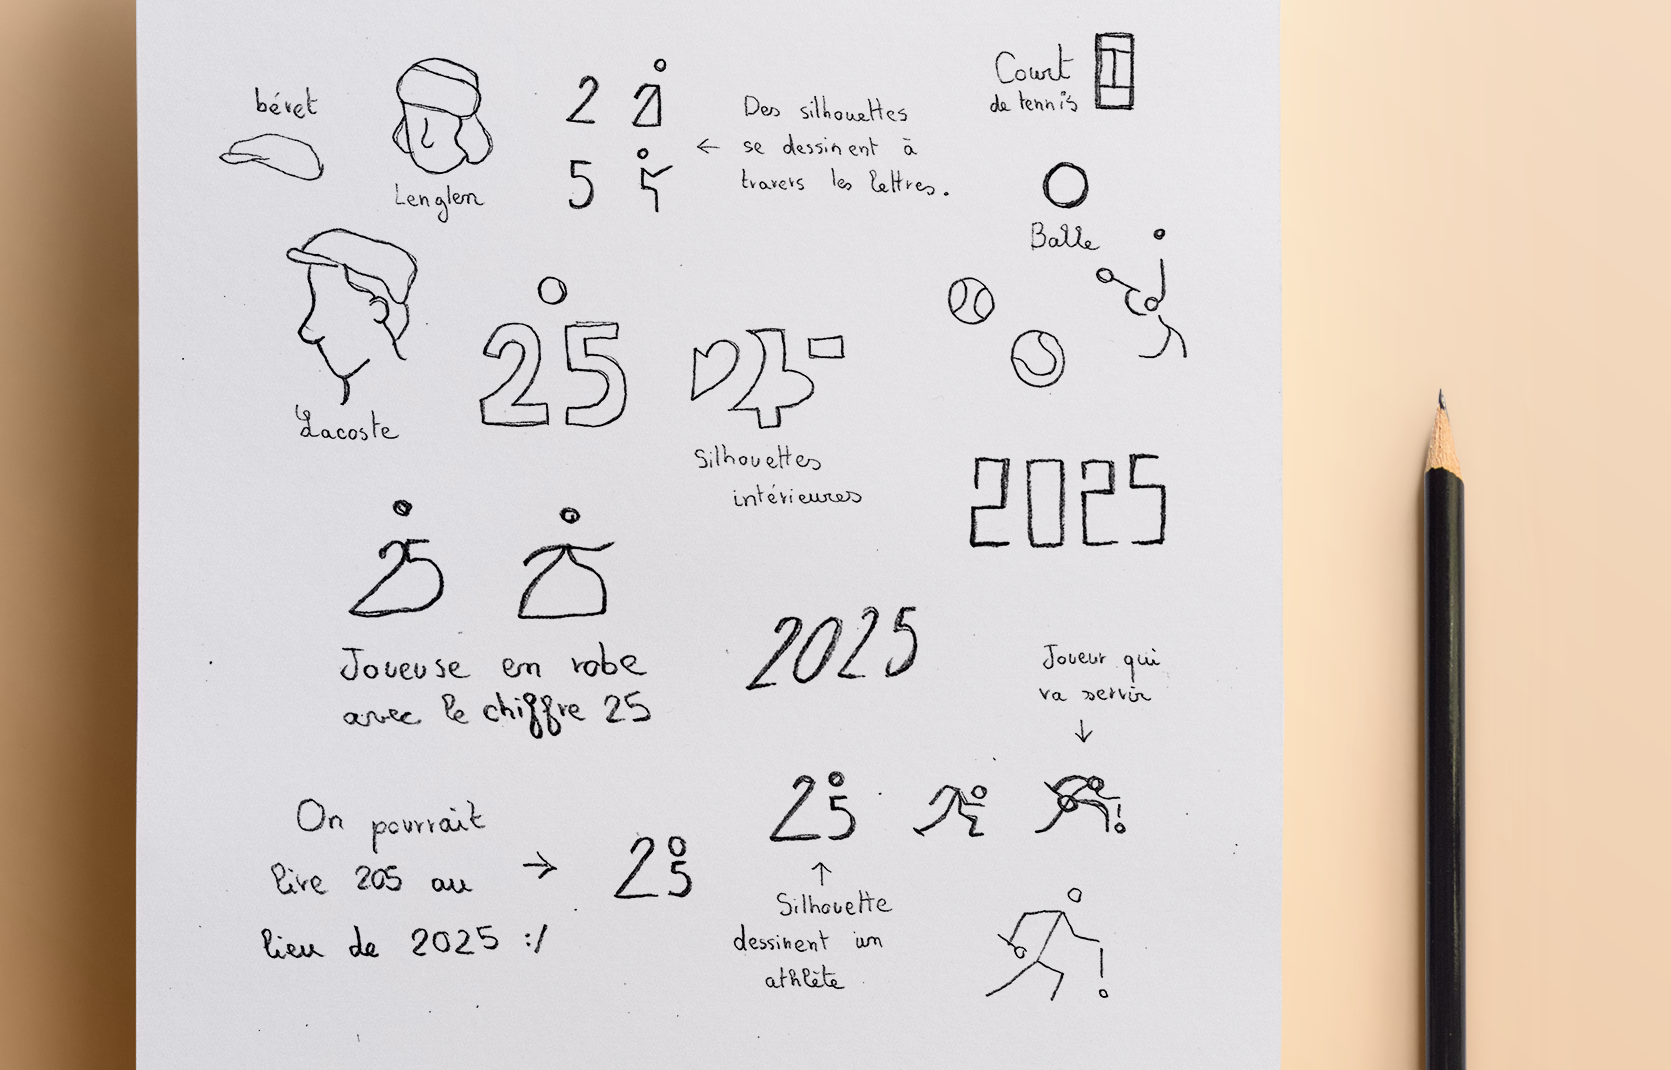 béret
Lenglen
2
5
Des silhouettes
se dessinent à
travers les lettres.
Court
de tennis
Balle
Lacoste
25
Silhouettes
intérieures
2025
25
25
Joueuse en robe
avec le chiffre 25
2025
Joueur qui
va servir
On pourrait
lire 205 au
lieu de 2025 :/
25
25
Silhouette
dessinent un
athlète